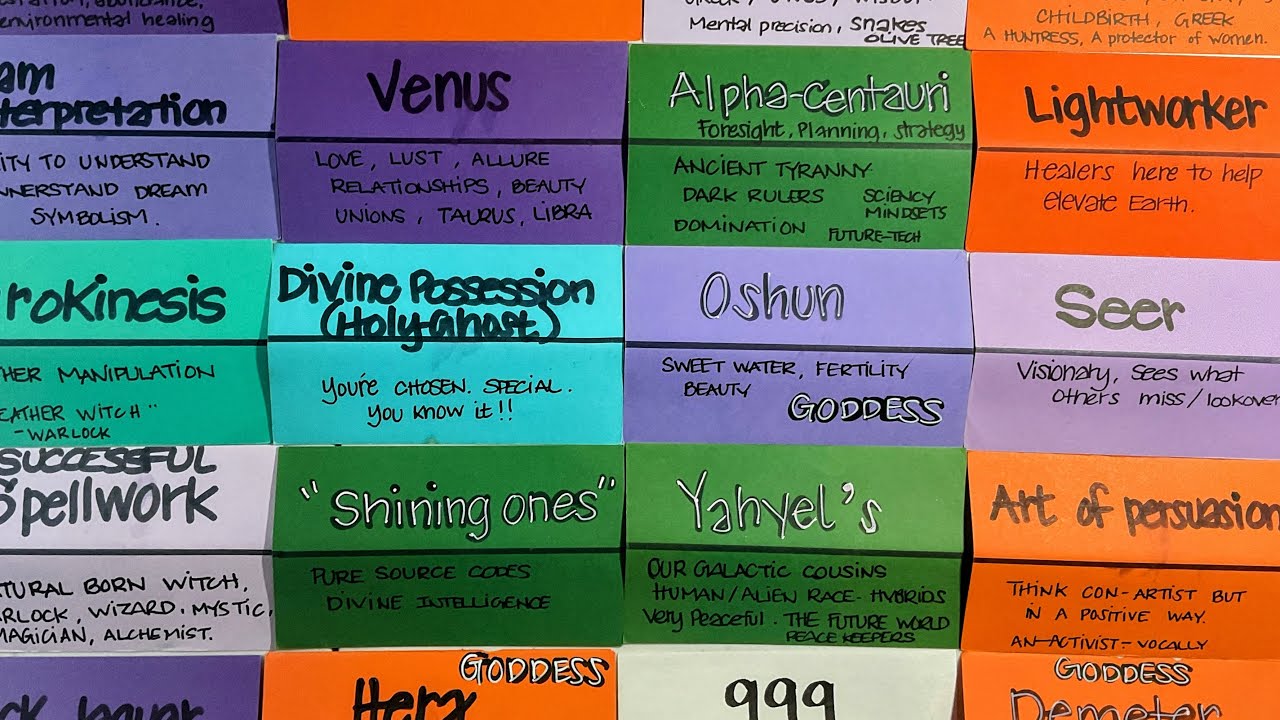 environmental healing
Mental precision, snakes
OLIVE TREE
CHILDBIRTH, GREEK
A HUNTRESS, A protector of women.
Venus
LOVE, LUST, ALLURE
RELATIONSHIPS, BEAUTY
UNIONS, TAURUS, LIBRA
Alpha-Centauri
Foresight, Planning, strategy
ANCIENT TYRANNY
DARK RULERS
DOMINATION
SCIENCY
MINDSETS
FUTURE-TECH
Lightworker
Healers here to help
elevate Earth.
TO UNDERSTAND
DREAM
SYMBOLISM.
MANIPULATION
WITCH"
-WARLOCK
Divine Possession
(Holy Ghost)
you're CHOSEN. SPECIAL.
you know it!!
Oshun
SWEET WATER, FERTILITY
BEAUTY
GODDESS
Seer
Visionary, sees what
others miss/lookover
SUCCESSFUL
Spellwork
BORN WITCH,
WIZARD, MYSTIC,
MAGICIAN, ALCHEMIST.
"Shining ones"
PURE SOURCE CODES
DIVINE INTELLIGENCE
Yahyel's
OUR GALACTIC COUSINS
HUMAN/ALIEN RACE- HYBRIDS
Very Peaceful. THE FUTURE WORLD
PEACE KEEPERS
Art of persuasion
THINK CON-ARTIST BUT
IN A POSITIVE WAY.
AN ACTIVIST-VOCALLY
Jaguar
GODDESS
Hera
999
GODDESS
Demeter